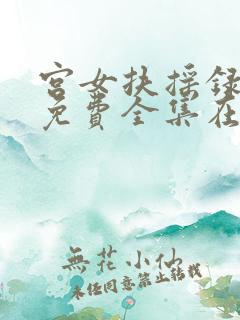 宫女扶摇録
免費全集在
無花小仙
未经同意禁止转载